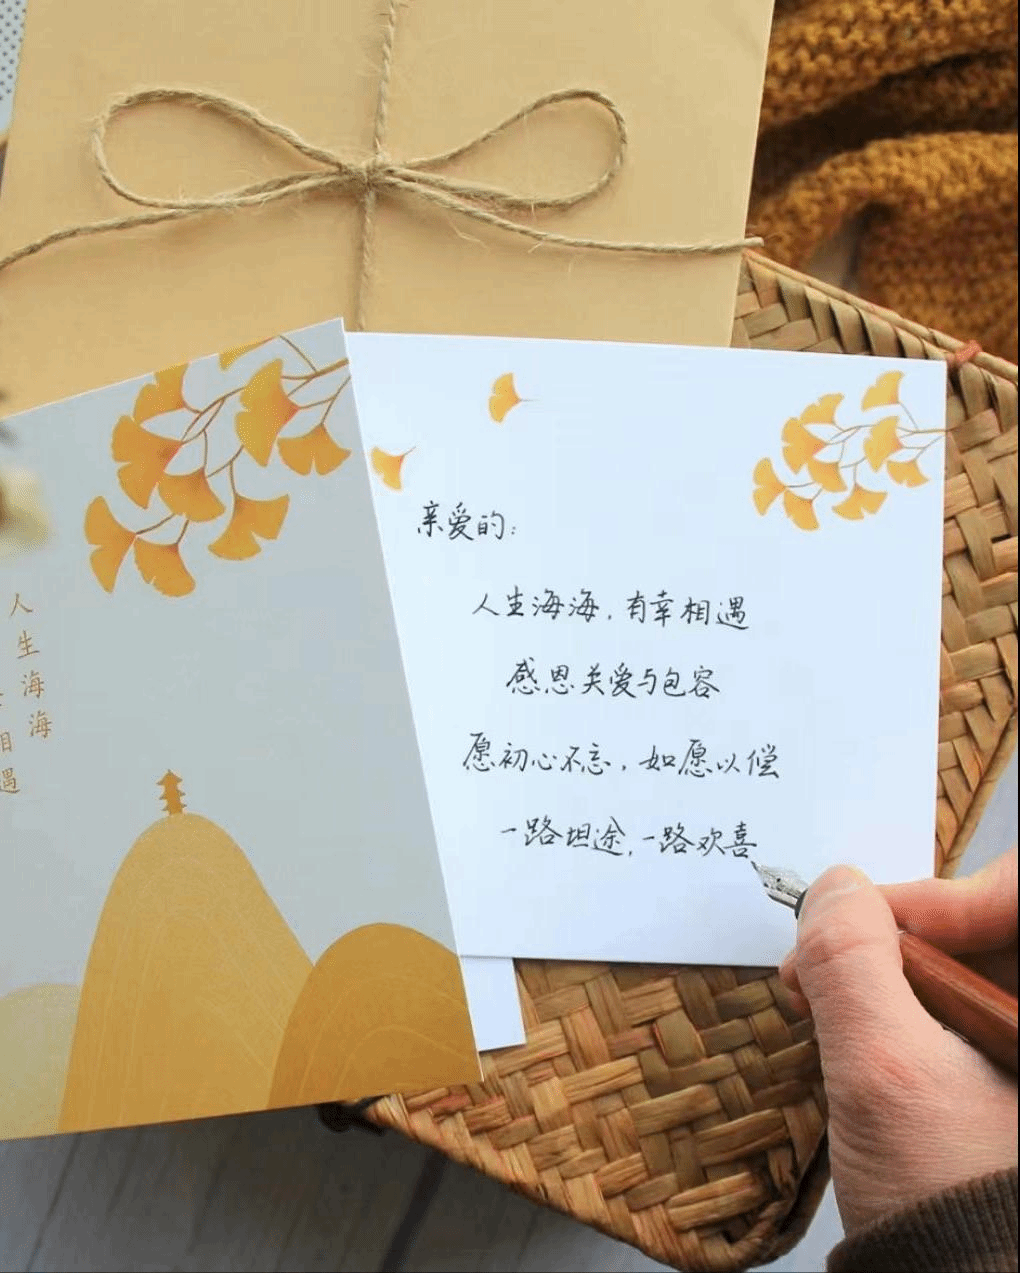 亲爱的:
人生海海,有幸相遇
感恩关爱与包容
愿初心不忘,如愿以偿
一路坦途,一路欢喜
人生海海
相遇